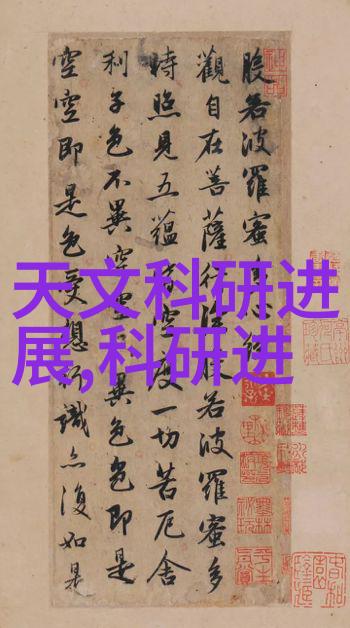 天文科研进
展,科研进
般若波羅蜜多心經
觀自在菩薩行深般若波羅蜜多
時照見五蘊皆空度一切苦厄舍
利子色不異空空不異色色即是
空空即是色受想行識亦復如是